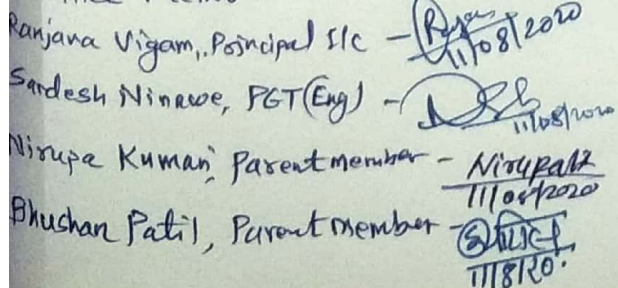 Ranjana Vigam, Principal I/c - 11/08/2020
Sardesh Ninawe, PGT(Eng) - 11/08/2020
Nirupa Kumari, Parent member - 11/08/2020
Bhushan Patil, Parent member - 11/8/20.